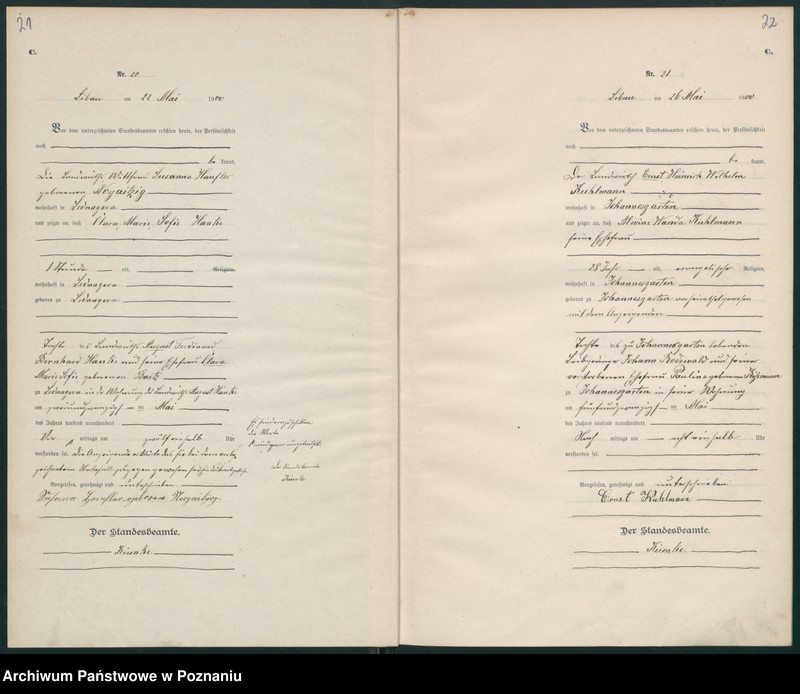 21
C.
Nr. 20
Libau am 22 Mai 1900
Vor dem unterzeichneten Standesbeamten erschien heute, der Persönlichkeit
nach
be kannt,
Die Susanna
geborenen
wohnhaft in Lednagora
und zeigte an, daß Clara Marie Sofie Hanke
1 Stunde alt, Religion,
wohnhaft in Lednagora
geboren zu Lednagora
Tochter des Landwirths August Ferdinand
Bernhard Hanke und seiner Ehefrau Clara
Marie Sofie geborenen
zu Lednagora in der Wohnung des Landwirths August Hanke
am zweiundzwanzigsten Mai
des Jahres tausend neunhundert
Vor mittags um zwölf einhalb Uhr
verstorben sei. Die Anzeigende erklärte daß sie bei dem vorbe-
zeichneten Sterbefall zugegen gewesen sei.
Vorgelesen, genehmigt und unterschrieben
Susanna geborene
Der Standesbeamte.
Der Standesbeamte
22
C.
Nr. 21
Libau am 26 Mai 1900
Vor dem unterzeichneten Standesbeamten erschien heute, der Persönlichkeit
nach
be kannt,
Der Landwirth Ernst Heinrich Wilhelm
Kuhlmann
wohnhaft in Johannesgarten
und zeigte an, daß Alwine Wanda Kuhlmann
seine Ehefrau
28 Jahr alt, evangelischer Religion,
wohnhaft in Johannesgarten
geboren zu Johannesgarten verheirathet gewesen
mit dem Anzeigenden
Tochter des zu Johannesgarten lebenden
Johann und seiner
verstorbenen Ehefrau Pauline geborenen
zu Johannesgarten in seiner Wohnung
am fünfundzwanzigsten Mai
des Jahres tausend neunhundert
Nach mittags um acht einhalb Uhr
verstorben sei.
Vorgelesen, genehmigt und unterschrieben
Ernst Kuhlmann
Der Standesbeamte.
Archiwum Państwowe w Poznaniu